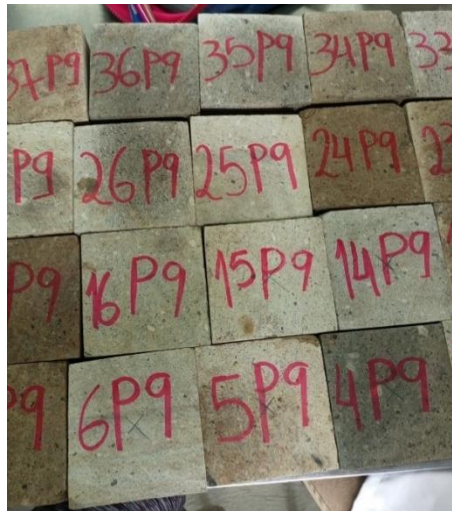 37P9 36P9 35P9 34P9 33
P9 26P9 25P9 24P9 23
P9 16P9 15P9 14P9
P9 6P9 5P9 4P9